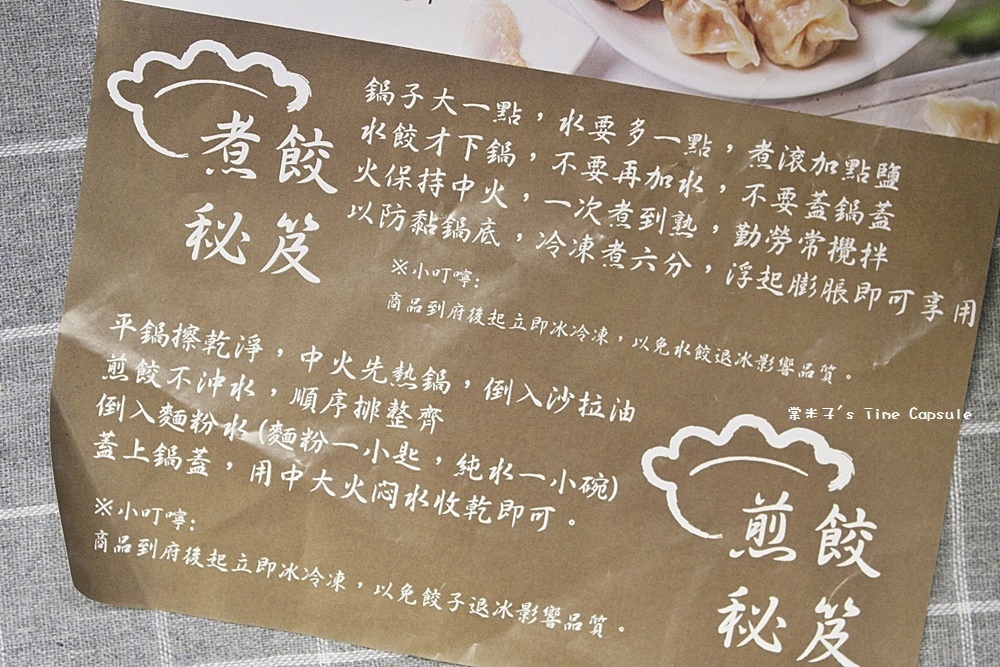 煮餃
秘笈
鍋子大一點，水要多一點，煮滾加點鹽
水餃才下鍋，不要再加水，不要蓋鍋蓋
火保持中火，一次煮到熟，勤勞常攪拌
以防黏鍋底，冷凍煮六分，浮起膨脹即可享用
※小叮嚀:
商品到府後起立即冰冷凍，以免水餃退冰影響品質。
平鍋擦乾淨，中火先熱鍋，倒入沙拉油
煎餃不沖水，順序排整齊
倒入麵粉水(麵粉一小匙，純水一小碗)
蓋上鍋蓋，用中大火悶水收乾即可。
※小叮嚀:
商品到府後起立即冰冷凍，以免餃子退冰影響品質。
煎餃
秘笈
棠米子's Time Capsule